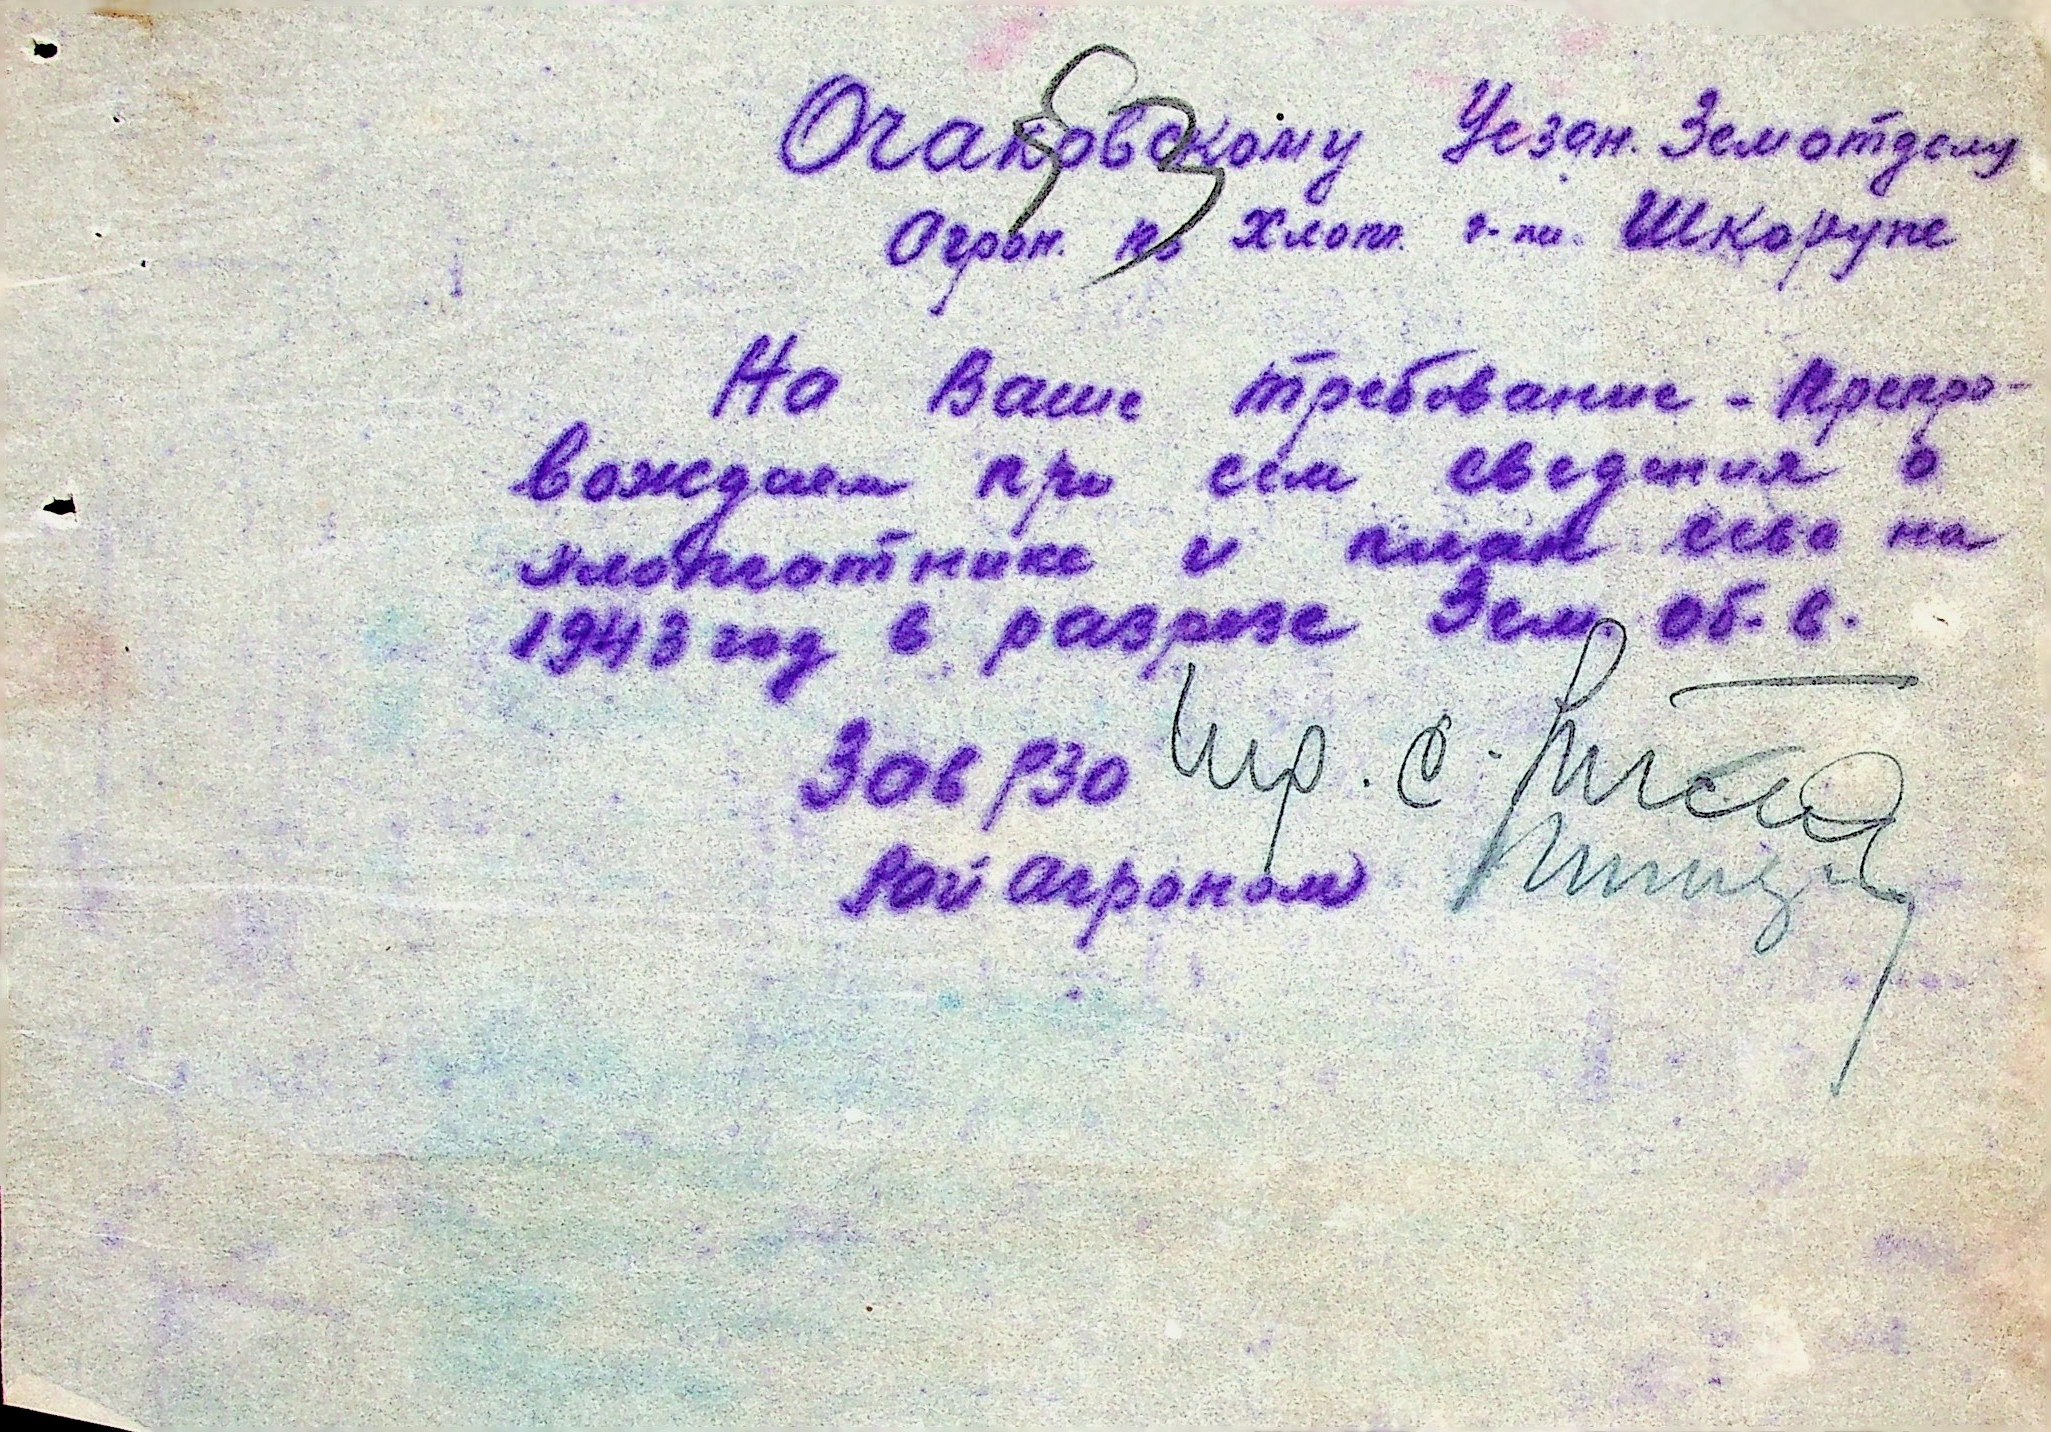 53
Очаковскому Уездн. Земотделу
Агрон. по Хлопк. г-ну. Шкорупе
На Ваше требование - Препро-
вождаем при сем сведения о
хлопчотнике и план сева на
1943 год в разрезе Зем. об. в.
Зав РЗО
Рай агроном